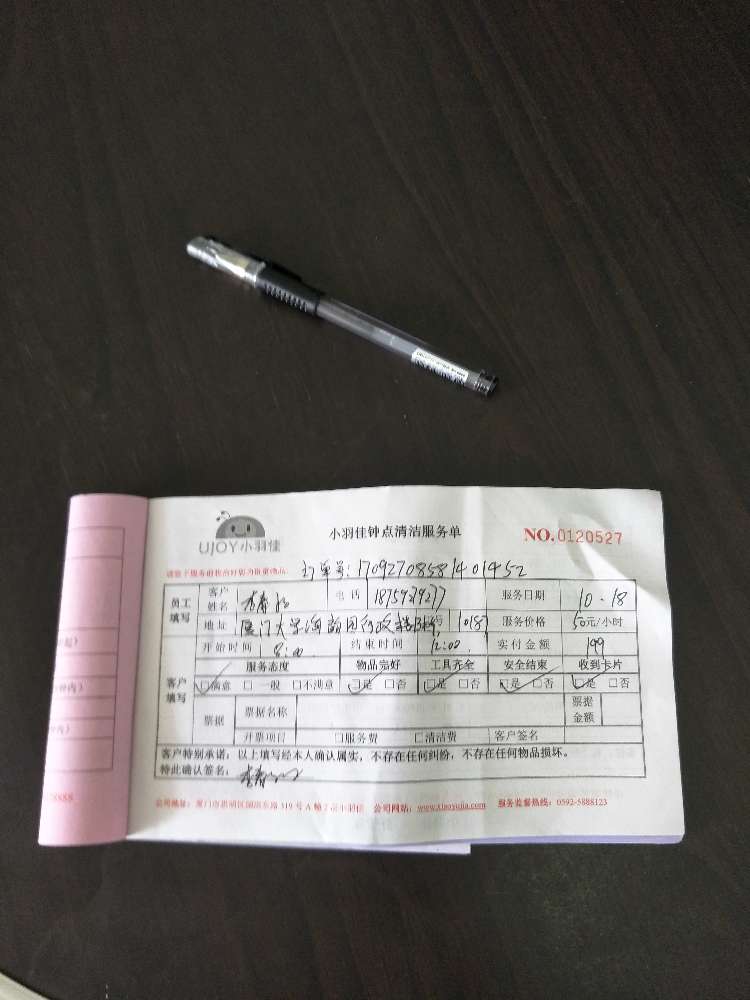 UJOY小羽佳
小羽佳钟点清洁服务单
NO.0120527
请您于服务前收拾好您的贵重物品
订单号:17092708581401452
员工填写
客户姓名 李春
电话
服务日期 10.18
地址 厦门大学海韵园行政楼 号 1018
服务价格 50元/小时
开始时间 8:00 结束时间 12:00 实付金额 199
客户填写
服务态度 物品完好 工具齐全 安全结束 收到卡片
□满意 □一般 □不满意 □是 □否 □是 □否 □是 □否 □是 □否
票据 票据名称 票据金额
开票项目 □服务费 □清洁费 客户签名
客户特别承诺:以上填写经本人确认属实,不存在任何纠纷,不存在任何物品损坏。
特此确认签名:李春
公司地址:厦门市思明区湖滨东路319号A幢 小羽佳 公司网站:www.xiaoyujia.com 服务监督热线:0592-5888123